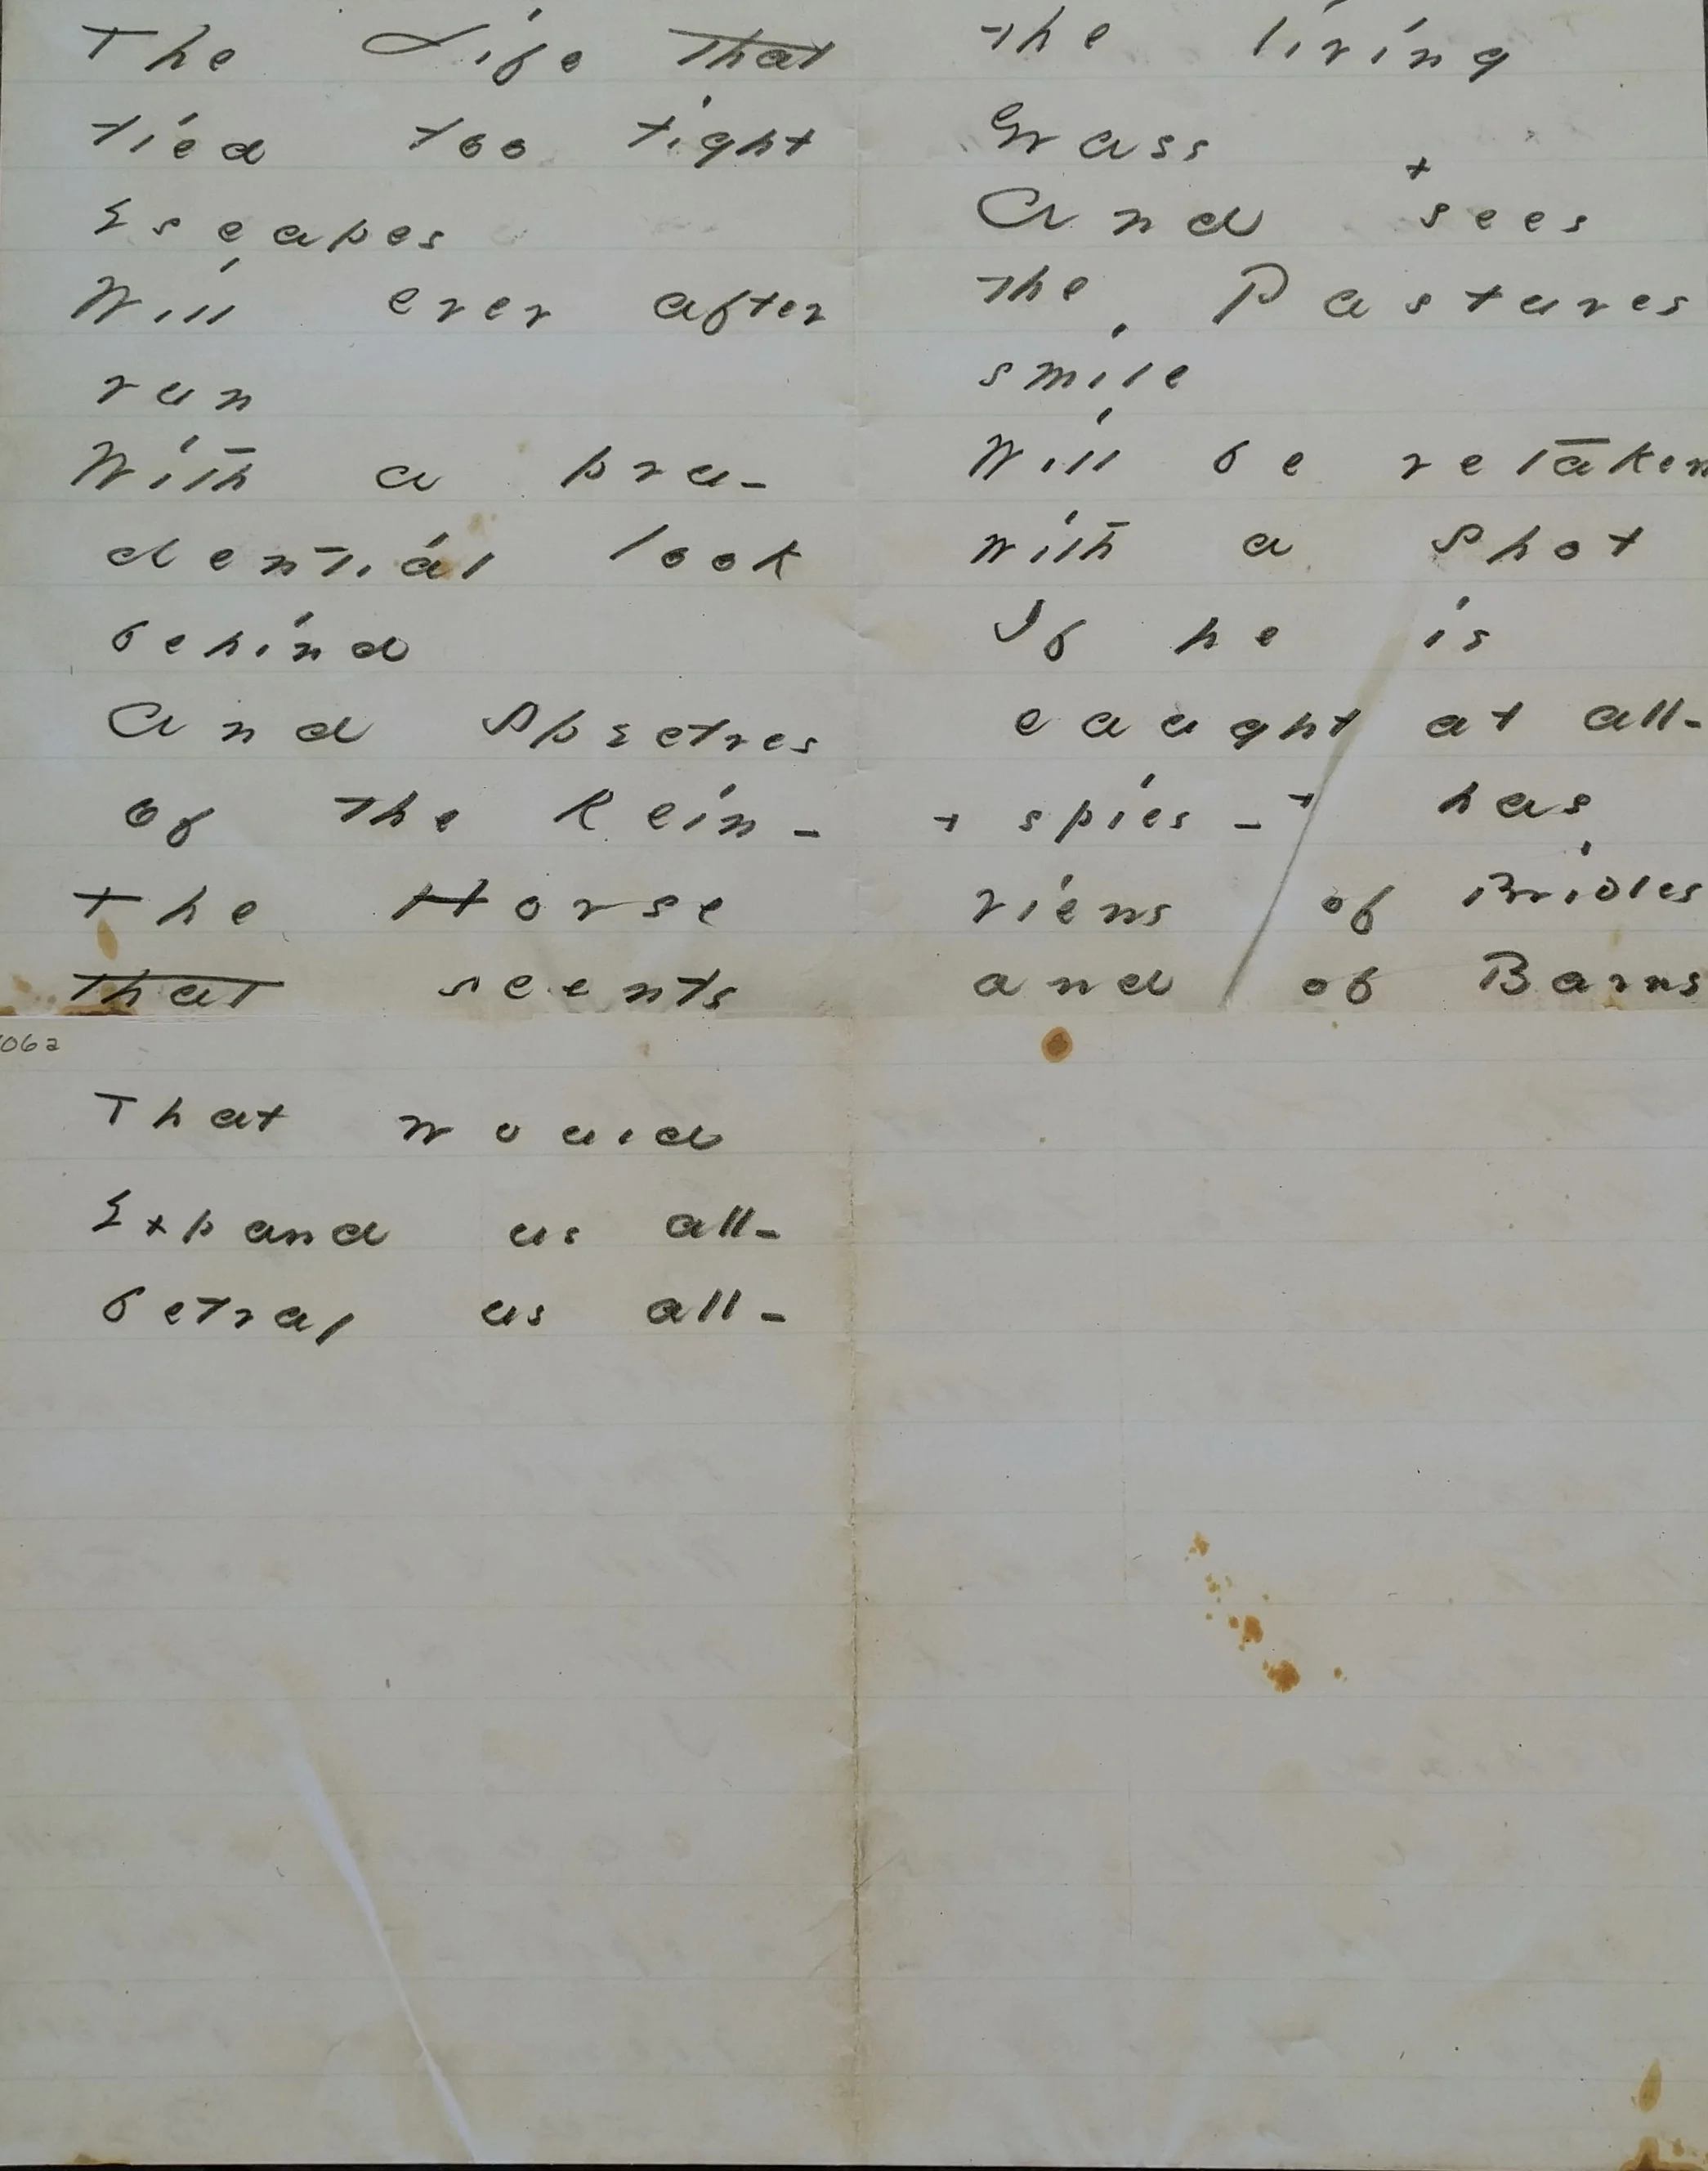 The Life That
tied too tight
Escapes
Will ever after
run
With a pru-
dential look
behind
And Spectres
of the Rein -
The Horse
that scents
the living
Grass
And + sees
the Pastures
smile
Will be retaken
with a shot
If he is
caught at all-
+ spies - + has
views of Bridles
and of Barns
That would
Expand us all-
betray us all-